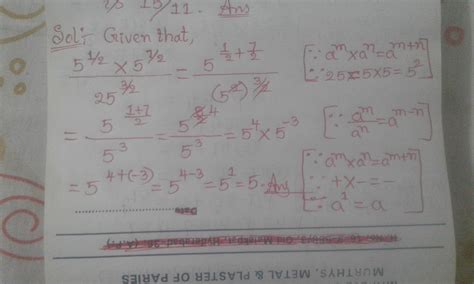 is 15/11. Ans
Sol:- Given that,
5^{1/2} × 5^{7/2} / 25^{3/2} = 5^{1/2 + 7/2} / (5^2)^{3/2} [∵ a^m × a^n = a^{m+n}
∵ 25 = 5×5 = 5^2]
= 5^{(1+7)/2} / 5^3 = 5^{8/2 4} / 5^3 = 5^4 × 5^{-3} [∵ a^m / a^n = a^{m-n}]
= 5^{4+(-3)} = 5^{4-3} = 5^1 = 5. Ans [∵ a^m × a^n = a^{m+n}
∵ + × - = -
∵ a^1 = a]
Date
MURTHYS, METAL & PLASTER OF PARIES